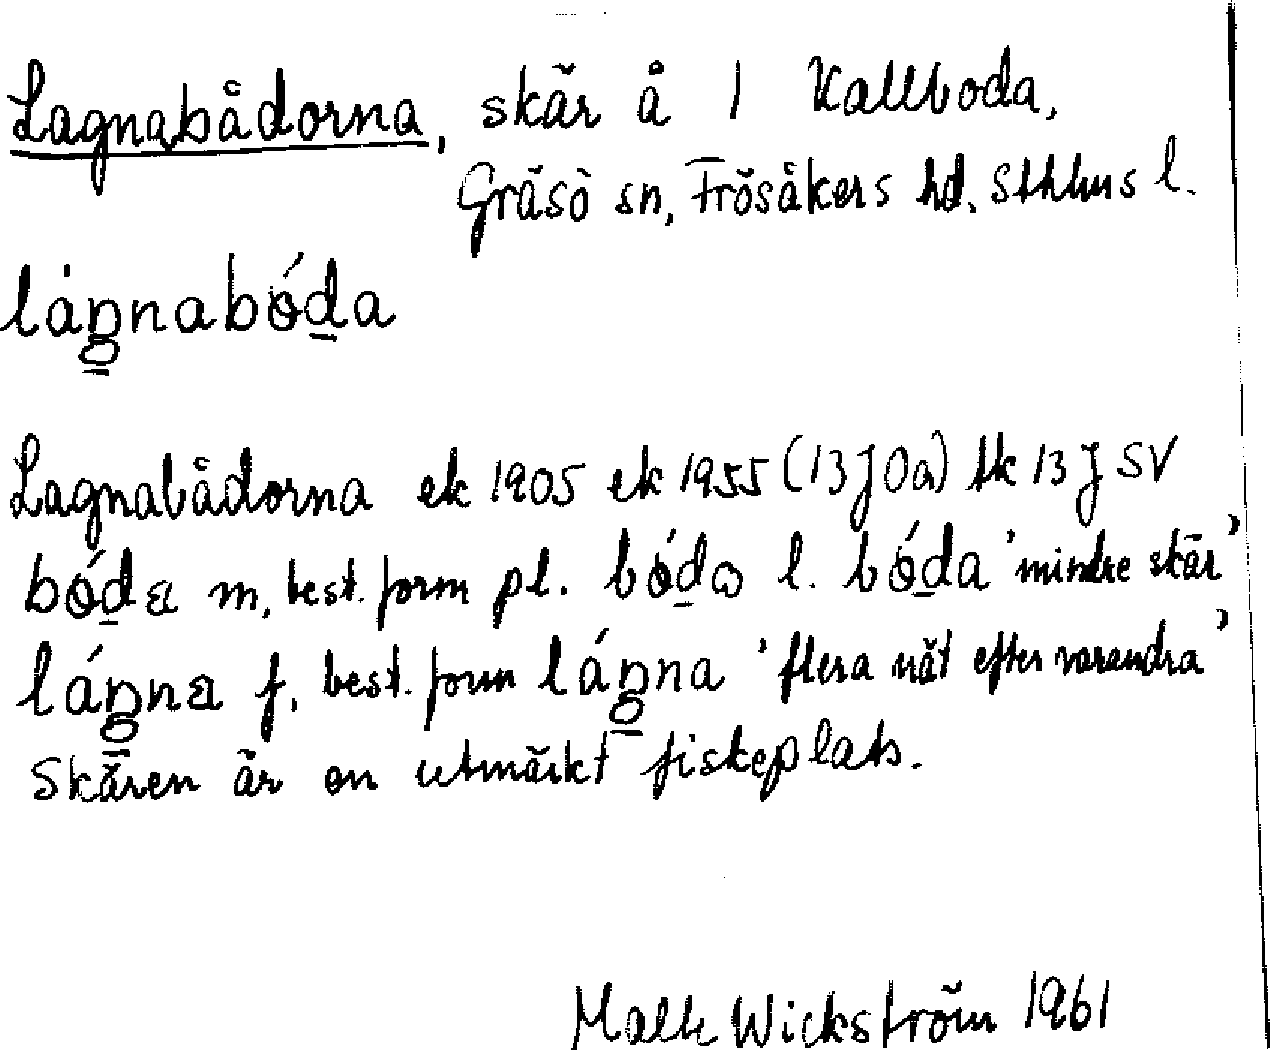 Lagnabådorna, skär å 1 Kallboda,
Gräsö sn, Frösåkers hd. Sthlms l.
láŋnabóda
Lagnabådorna ek 1905 ek 1955 (13J0a) tk 13 J SV
bóda m, best. form pl. bóda l. bóda 'mindre skär'
láŋna f, best. form láŋna 'flera nät efter varandra'
Skären är en utmärkt fiskeplats.
Wickström 1961